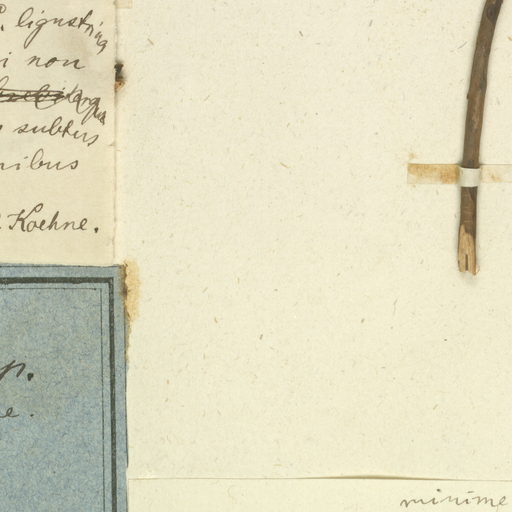 P. ligustrina
i non
subtus
nibus
Koehne.
p.
e.
minime